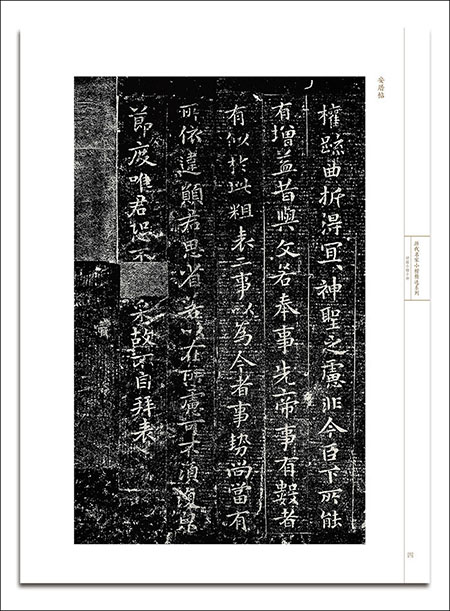 權踈曲折得冝神聖之慮非今臣下所能
有增益昔與文若奉事先帝事有數者
有似於此粗表二事以為今者事勢尚當有
所依違願君思省若以在所慮可不須復皃
節度唯君恐不采故不自拜表
四